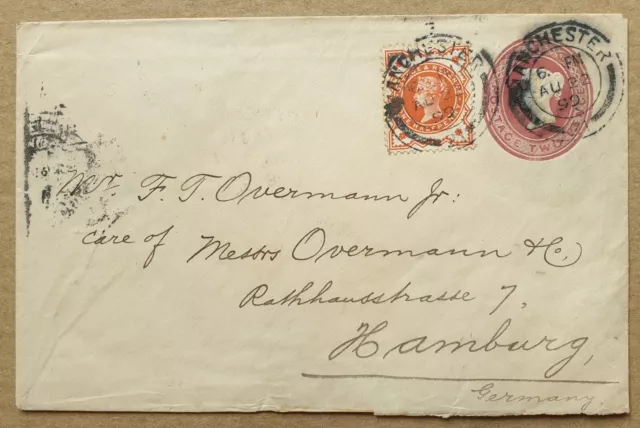 MANCHESTER
AU
MANCHESTER
6
AU
POSTAGE TWO
Mr. F. T. Overmann Jr:
care of Messrs Overmann & Co,
Rathhausstrasse 7,
Hamburg,
Germany.